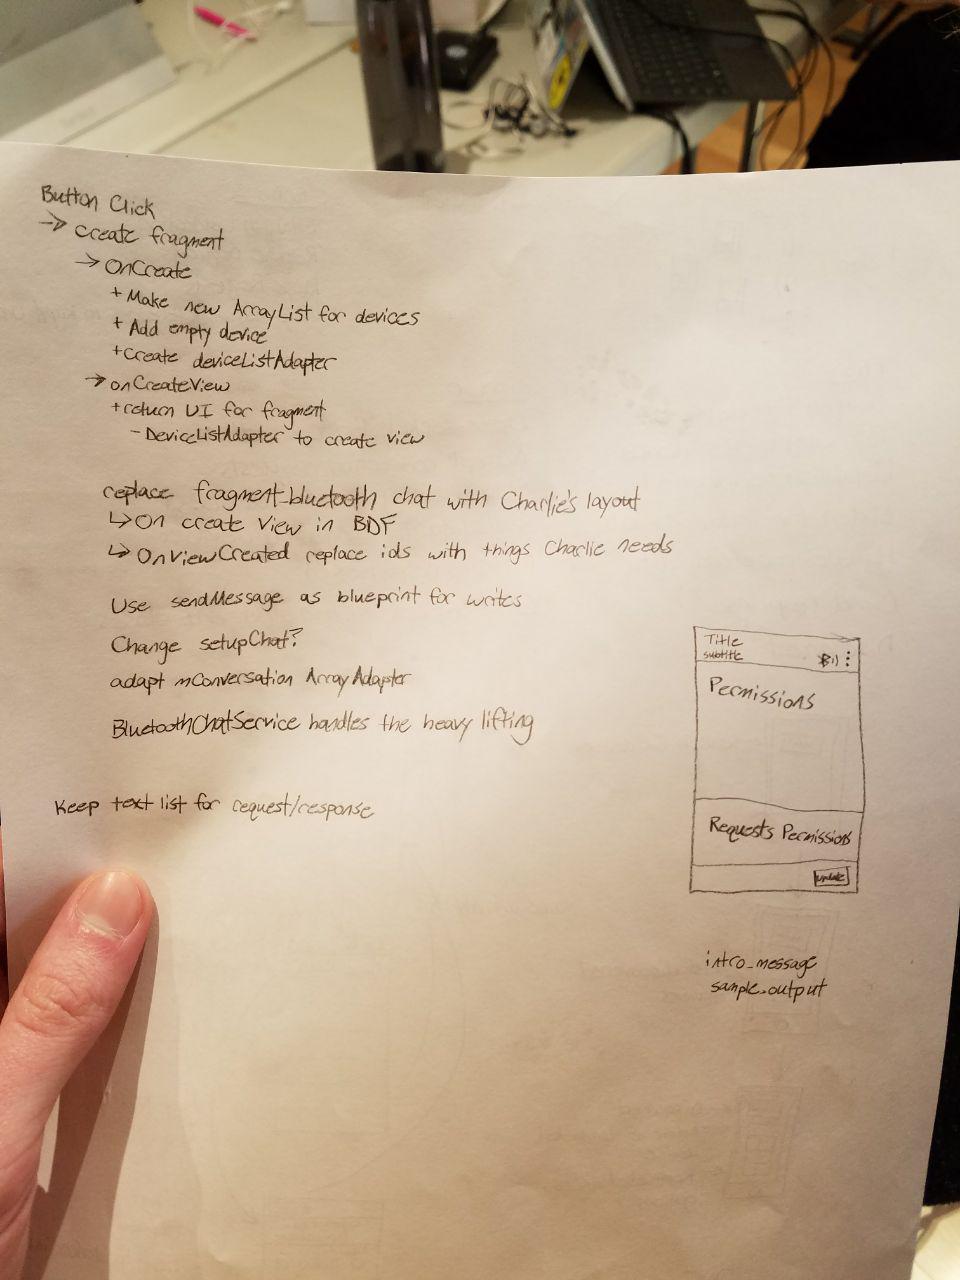 Button Click
→ create fragment
→ OnCreate
+ Make new ArrayList for devices
+ Add empty device
+ Create deviceListAdapter
→ onCreateView
+ return UI for fragment
- DeviceListAdapter to create view
replace fragment_bluetooth chat with Charlie's layout
↳ On create View in BDF
↳ OnViewCreated replace ids with things Charlie needs
Use sendMessage as blueprint for writes
Change setupChat?
adapt mConversation ArrayAdapter
BluetoothChatService handles the heavy lifting
Keep text list for request/response
Title
subtitle
Permissions
Requests Permissions
update
intro_message
sample_output